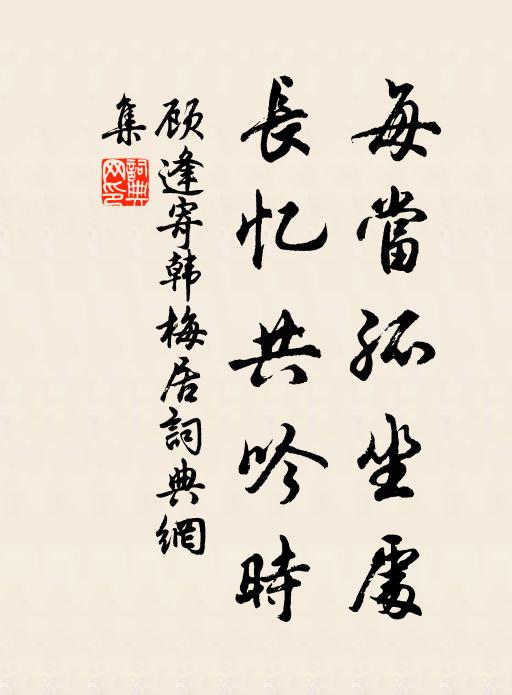 每當孤坐處
長忆共吟時
顾逢寄韩梅居詞典網
集
詞典網印